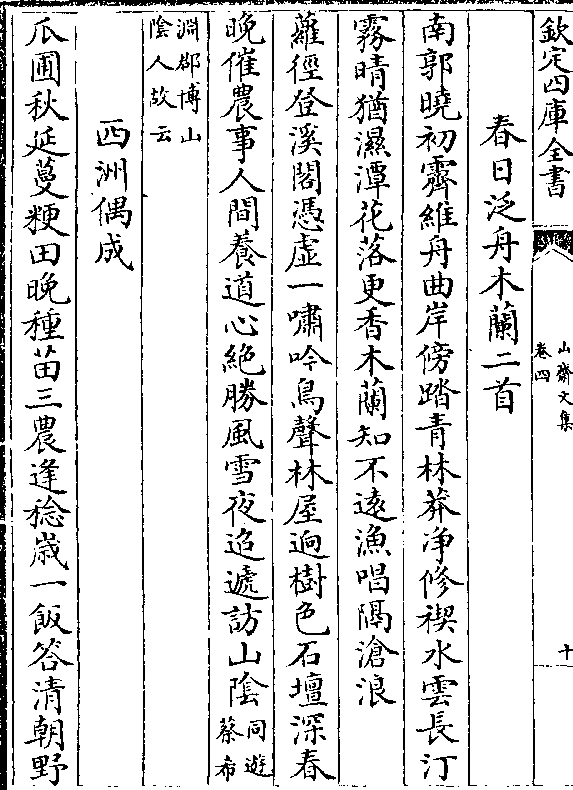 欽定四庫全書
山齋文集
卷四
十
春日泛舟木蘭二首
南郭曉初霽維舟曲岸傍踏青林莽净修禊水雲長汀
霧晴猶濕潭花落更香木蘭知不遠漁唱隔滄浪
蘿徑登溪閣憑虛一嘯吟鳥聲林屋逈樹色石壇深春
晚催農事人間養道心絶勝風雪夜迢遞訪山陰
同遊
蔡希
淵郡博山
陰人故云
西洲偶成
瓜圃秋延蔓粳田晚種苗三農逢稔歳一飯答清朝野